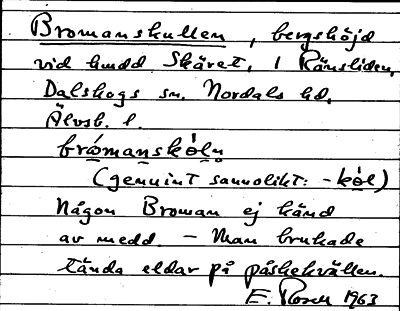 Bromanskullen, bergshöjd
vid hmdd Skäret, i Ränsliden,
Dalskogs sn. Nordals hd,
Älvsb. l.
brómanskòln
(genuint sannolikt: -kòl)
Någon Broman ej känd
av medd. – Man brukade
tända eldar på påskekvällen.
E. Rosell 1963